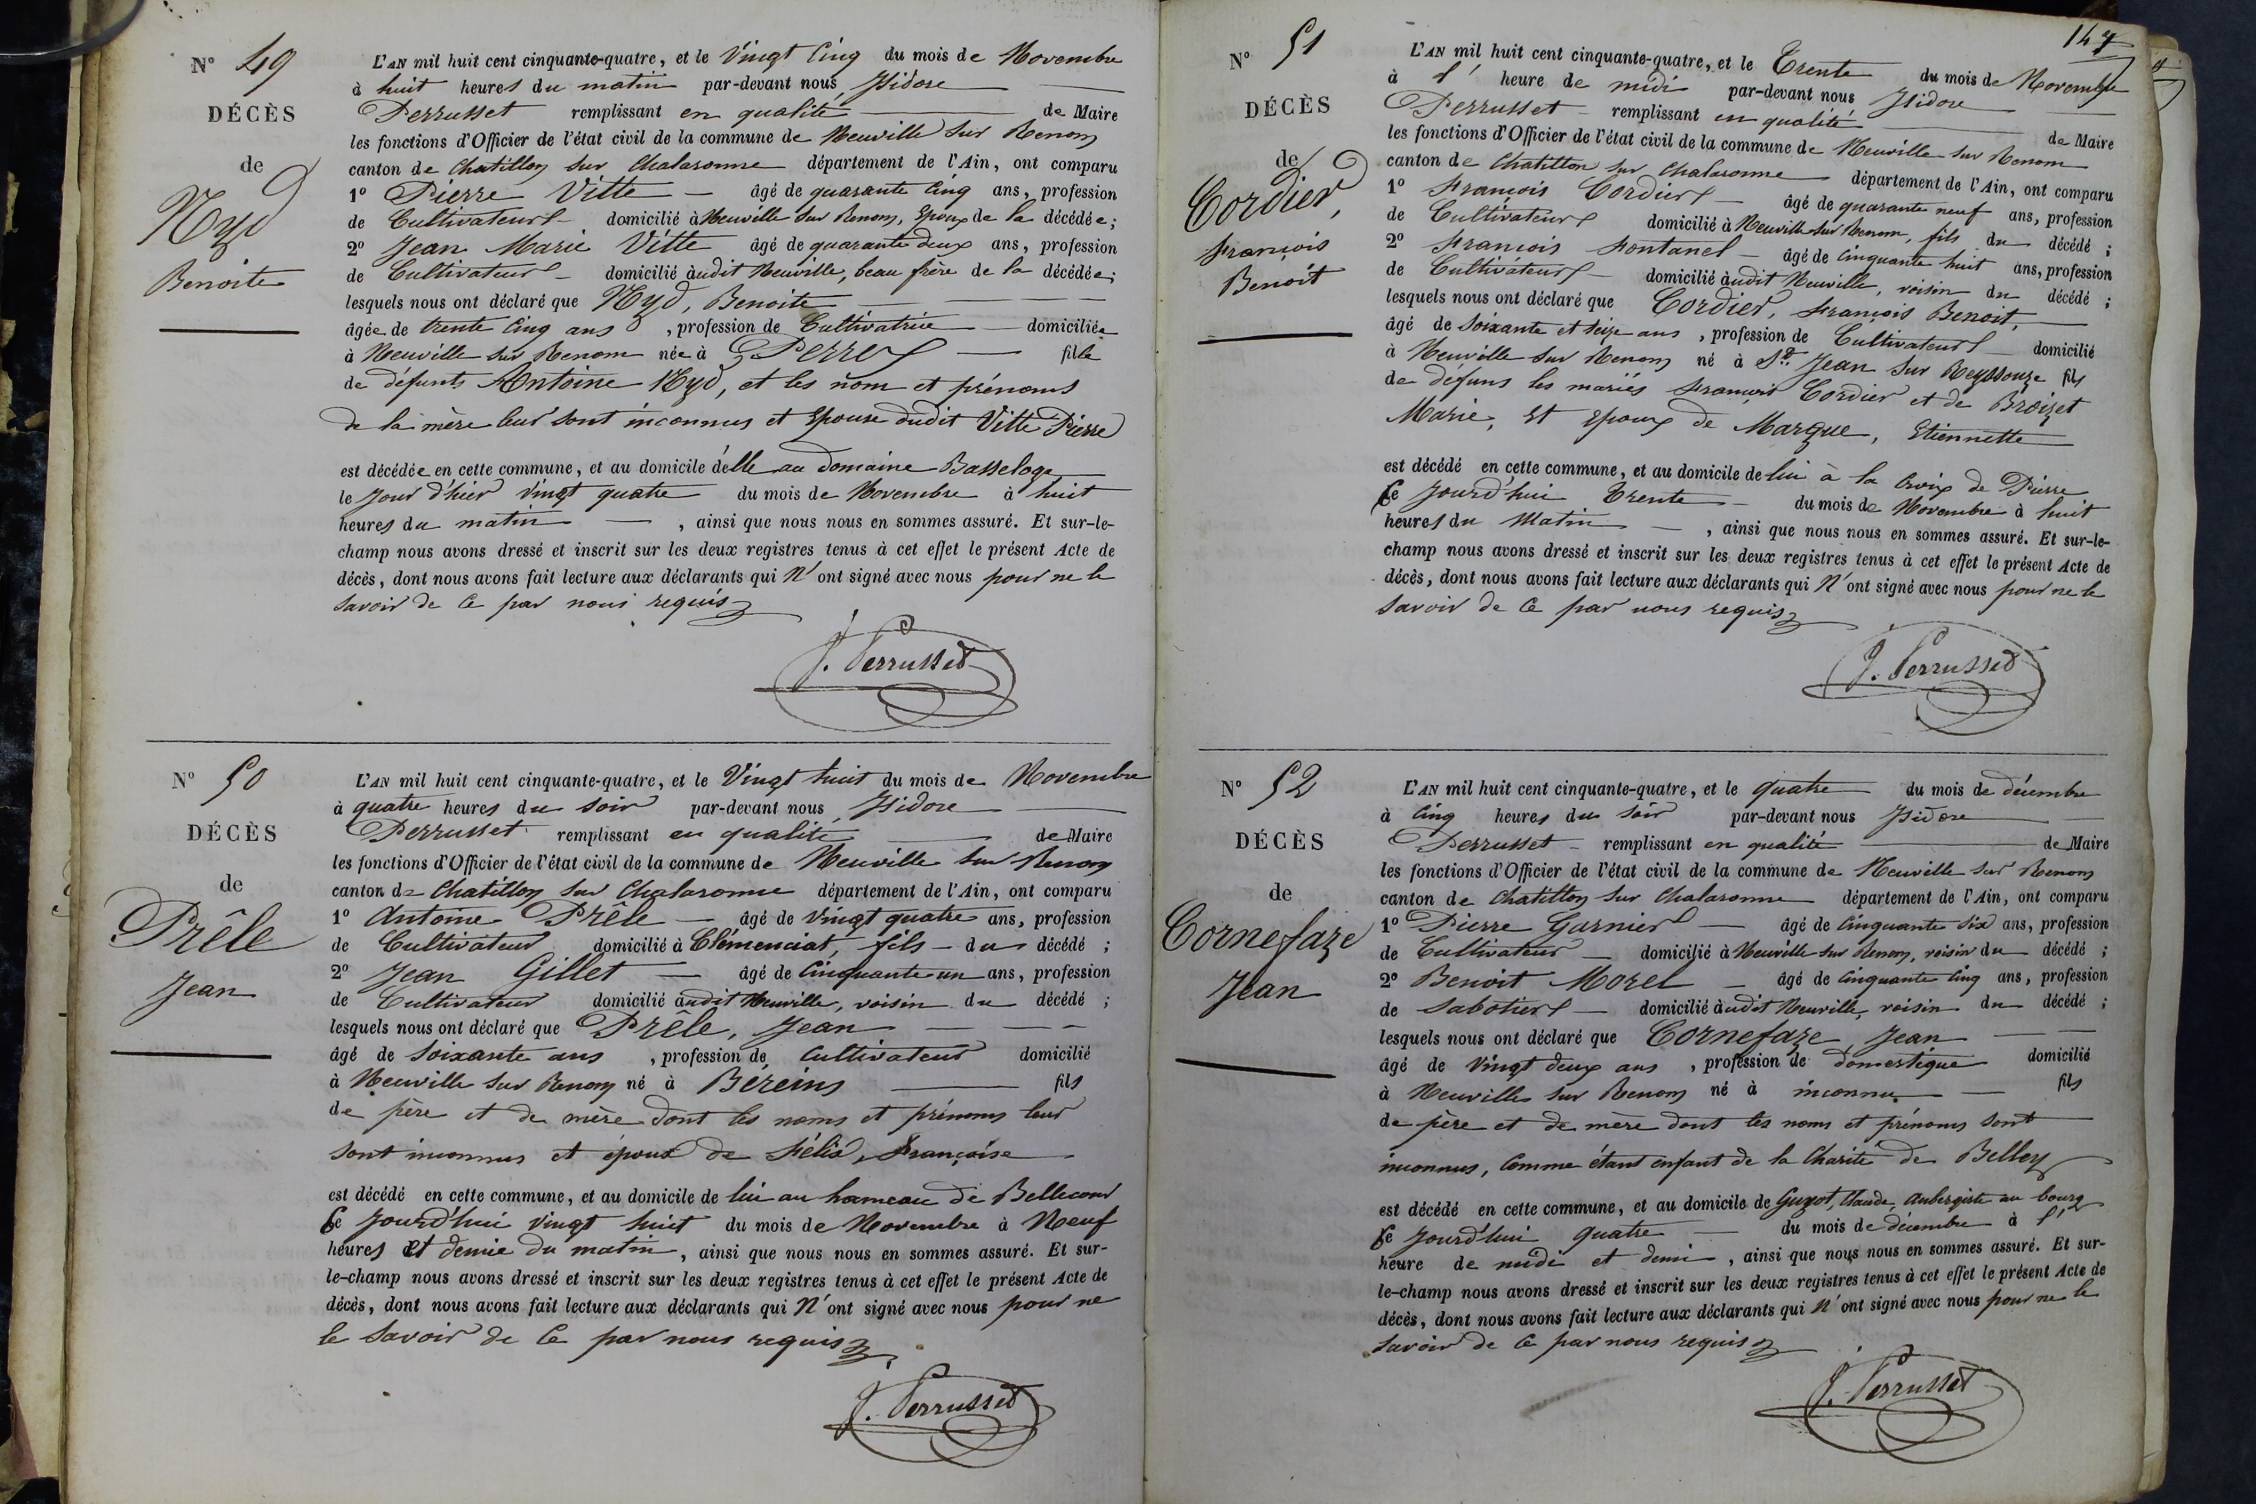 N° 49
DÉCÈS
de
Nyd
Benoite
L'AN mil huit cent cinquante-quatre, et le Vingt Cinq du mois de Novembre
à huit heures du matin par-devant nous, Isidore
Perrusset remplissant en qualité de Maire
les fonctions d'Officier de l'état civil de la commune de Neuville sur Renom
canton de Chatillon sur Chalaronne département de l'Ain, ont comparu
1° Pierre Vitte — âgé de quarante cinq ans, profession
de Cultivateur domicilié à Neuville sur Renom, Epoux de la décédée;
2° Jean Marie Vitte âgé de quarante deux ans, profession
de Cultivateur domicilié audit Neuville, beau frère de la décédée;
lesquels nous ont déclaré que Nyd, Benoite
âgée de trente cinq ans, profession de Cultivatrice domiciliée
à Neuville sur Renom née à Perrex — fille
de défunts Antoine Nyd, et les nom et prénoms
de la mère leur sont inconnus et Epouse dudit Vitte Pierre
est décédée en cette commune, et au domicile d'elle au domaine Basseloge
le jour d'hier vingt quatre du mois de Novembre à huit
heures du matin —, ainsi que nous nous en sommes assuré. Et sur-le-
champ nous avons dressé et inscrit sur les deux registres tenus à cet effet le présent Acte de
décès, dont nous avons fait lecture aux déclarants qui N'ont signé avec nous pour ne le
savoir de ce par nous requis
J. Perrusset
N° 50
DÉCÈS
de
Prêle
Jean
L'AN mil huit cent cinquante-quatre, et le Vingt huit du mois de Novembre
à quatre heures du soir par-devant nous, Isidore
Perrusset remplissant en qualité de Maire
les fonctions d'Officier de l'état civil de la commune de Neuville sur Renom
canton de Chatillon sur Chalaronne département de l'Ain, ont comparu
1° Antoine Prêle — âgé de vingt quatre ans, profession
de Cultivateur domicilié à Clémenciat, fils du décédé;
2° Jean Gillet — âgé de Cinquante un ans, profession
de Cultivateur domicilié audit Neuville, voisin du décédé;
lesquels nous ont déclaré que Prêle, Jean
âgé de soixante ans, profession de Cultivateur domicilié
à Neuville sur Renom né à Béreins — fils
de père et de mère dont les noms et prénoms leur
sont inconnus et époux de Félix, Françoise
est décédé en cette commune, et au domicile de lui au hameau de Bellecour
Ce jourd'hui vingt huit du mois de Novembre à Neuf
heures et demie du matin, ainsi que nous nous en sommes assuré. Et sur-
le-champ nous avons dressé et inscrit sur les deux registres tenus à cet effet le présent Acte de
décès, dont nous avons fait lecture aux déclarants qui N'ont signé avec nous pour ne
le savoir de ce par nous requis
J. Perrusset
147
N° 51
DÉCÈS
de
Cordier,
François
Benoit
L'AN mil huit cent cinquante-quatre, et le Trente du mois de Novembre
à l' heure de midi par-devant nous Isidore
Perrusset remplissant en qualité de Maire
les fonctions d'Officier de l'état civil de la commune de Neuville sur Renom
canton de Chatillon sur Chalaronne département de l'Ain, ont comparu
1° François Cordier — âgé de quarante neuf ans, profession
de Cultivateur domicilié à Neuville sur Renom, fils du décédé;
2° François Fontanel — âgé de Cinquante huit ans, profession
de Cultivateur domicilié audit Neuville, voisin du décédé;
lesquels nous ont déclaré que Cordier, François Benoit,
âgé de soixante et seize ans, profession de Cultivateur domicilié
à Neuville sur Renom né à St. Jean sur Reyssouze fils
de défuns les mariés François Cordier et de Broizet
Marie, Et Epoux de Marque, Etiennette
est décédé en cette commune, et au domicile de lui à la Croix de Pierre
Ce jourd'hui Trente du mois de Novembre à huit
heures du Matin —, ainsi que nous nous en sommes assuré. Et sur-le-
champ nous avons dressé et inscrit sur les deux registres tenus à cet effet le présent Acte de
décès, dont nous avons fait lecture aux déclarants qui N'ont signé avec nous pour ne le
savoir de ce par nous requis
J. Perrusset
N° 52
DÉCÈS
de
Cornefaze
Jean
L'AN mil huit cent cinquante-quatre, et le quatre du mois de décembre
à Cinq heures du soir par-devant nous Isidore
Perrusset remplissant en qualité de Maire
les fonctions d'Officier de l'état civil de la commune de Neuville sur Renom
canton de Chatillon sur Chalaronne département de l'Ain, ont comparu
1° Pierre Garnier — âgé de Cinquante six ans, profession
de Cultivateur domicilié à Neuville sur Renom, voisin du décédé;
2° Benoit Morel — âgé de Cinquante Cinq ans, profession
de Sabotier domicilié audit Neuville, voisin du décédé;
lesquels nous ont déclaré que Cornefaze, Jean
âgé de vingt deux ans, profession de domestique domicilié
à Neuville sur Renom né à inconnu — fils
de père et de mère dont les noms et prénoms sont
inconnus, Comme étant enfant de la Charité de Belley
est décédé en cette commune, et au domicile de Guyot, Claude, Aubergiste au bourg
Ce jourd'hui quatre — du mois de décembre à l'
heure de midi et demi, ainsi que nous nous en sommes assuré. Et sur-
le-champ nous avons dressé et inscrit sur les deux registres tenus à cet effet le présent Acte de
décès, dont nous avons fait lecture aux déclarants qui N'ont signé avec nous pour ne le
savoir de ce par nous requis
J. Perrusset